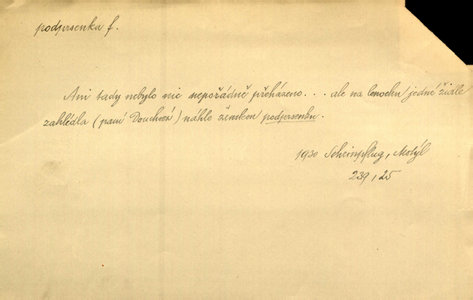 podprsenka f.
Ani tady nebylo nic nepořádně přeházeno... ale na lenochu jedné židle
zahlédla (paní Douchová) náhle ženskou podprsenku.
1930 Scheinpflug, Motýl
239, 25